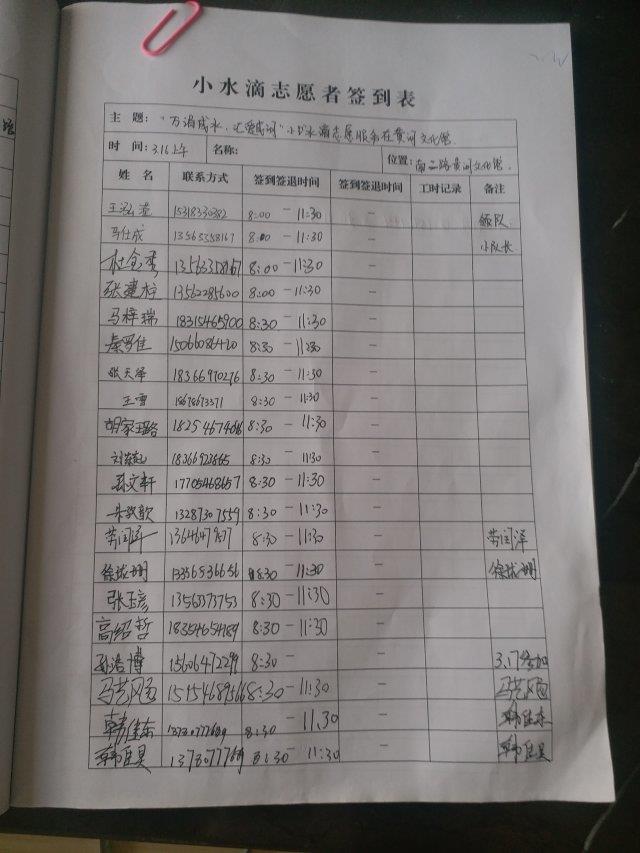 小水滴志愿者签到表
主 题： "万滴成水，汇爱成河"小水滴志愿服务在黄河文化馆
时 间：3.16上午 名称： 位置：南二路黄河文化馆.
姓 名 联系方式 签到签退时间 签到签退时间 工时记录 备注
王泓 15318330382 8:00 — 11:30 — 领队
马仕成 13563358167 8:00 — 11:30 — 小队长
杜金 13563358167 8:00 — 11:30 —
张建 13562285600 8:00 — 11:30 —
马梓瑞 18315465900 8:30 — 11:30 —
秦罗佳 15066086420 8:30 — 11:30 —
张天泽 18366970276 8:30 — 11:30 —
王雪 18678673371 8:30 — 11:30 —
胡家璐 8:30 — 11:30 —
18366923865 8:30 — 11:30 —
孙文轩 17705468657 8:30 — 11:30 —
朱歆 13287307559 8:30 — 11:30 —
劳闰泽 8:30 — 11:30 — 劳闰泽
徐 8:30 — 11:30 — 徐
张玉彦 13563373753 8:30 — 11:30 —
高绍哲 18354654189 8:30 — 11:30 —
孙浩博 15606472299 8:30 — — 3.17参加
马艺 8:30 — 11:30 — 马艺
韩佳东 8:30 — 11.30 — 韩佳东
韩佳昊 8:30 — 11:30 — 韩佳昊